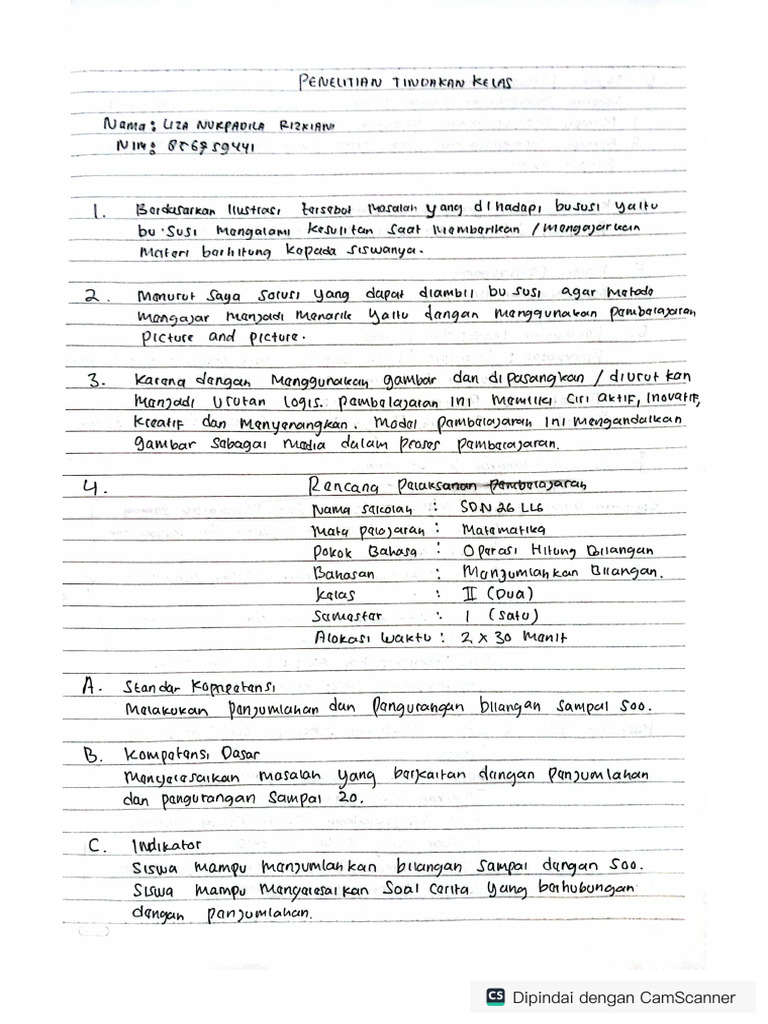 PENELITIAN TINDAKAN KELAS
Nama : LIZA NURPADILA RIZKIANI
NIM : 856759441
1. Berdasarkan Ilustrasi tersebut masalah yang dihadapi bususi yaitu
bu susi mengalami kesulitan saat memberikan / mengajarkan
materi berhitung kepada siswanya.
2. Menurut saya solusi yang dapat diambil bu susi agar metode
mengajar menjadi menarik yaitu dengan menggunakan pembelajaran
picture and picture.
3. Karena dengan menggunakan gambar dan dipasangkan / diurutkan
menjadi urutan logis. pembelajaran ini memiliki ciri aktif, inovatif,
kreatif dan menyenangkan. Model pembelajaran ini mengandalkan
gambar sebagai media dalam proses pembelajaran.
4. Rencang Pelaksanan Pembelajaran
Nama sekolah : SDN 26 LLG
Mata pelajaran : Matematika
Pokok Bahasa : Operasi Hitung Bilangan
Bahasan : Menjumlahkan Bilangan.
Kelas : II (Dua)
Semester : 1 (satu)
Alokasi waktu : 2 x 30 Menit
A. Standar Kompetensi
Melakukan penjumlahan dan pengurangan bilangan sampai 500.
B. Kompetensi Dasar
Menyelesaikan masalah yang berkaitan dengan penjumlahan
dan pengurangan sampai 20.
C. Indikator
Siswa mampu menjumlahkan bilangan sampai dengan 500.
Siswa mampu menyelesaikan soal cerita yang berhubungan
dengan penjumlahan.
CS Dipindai dengan CamScanner